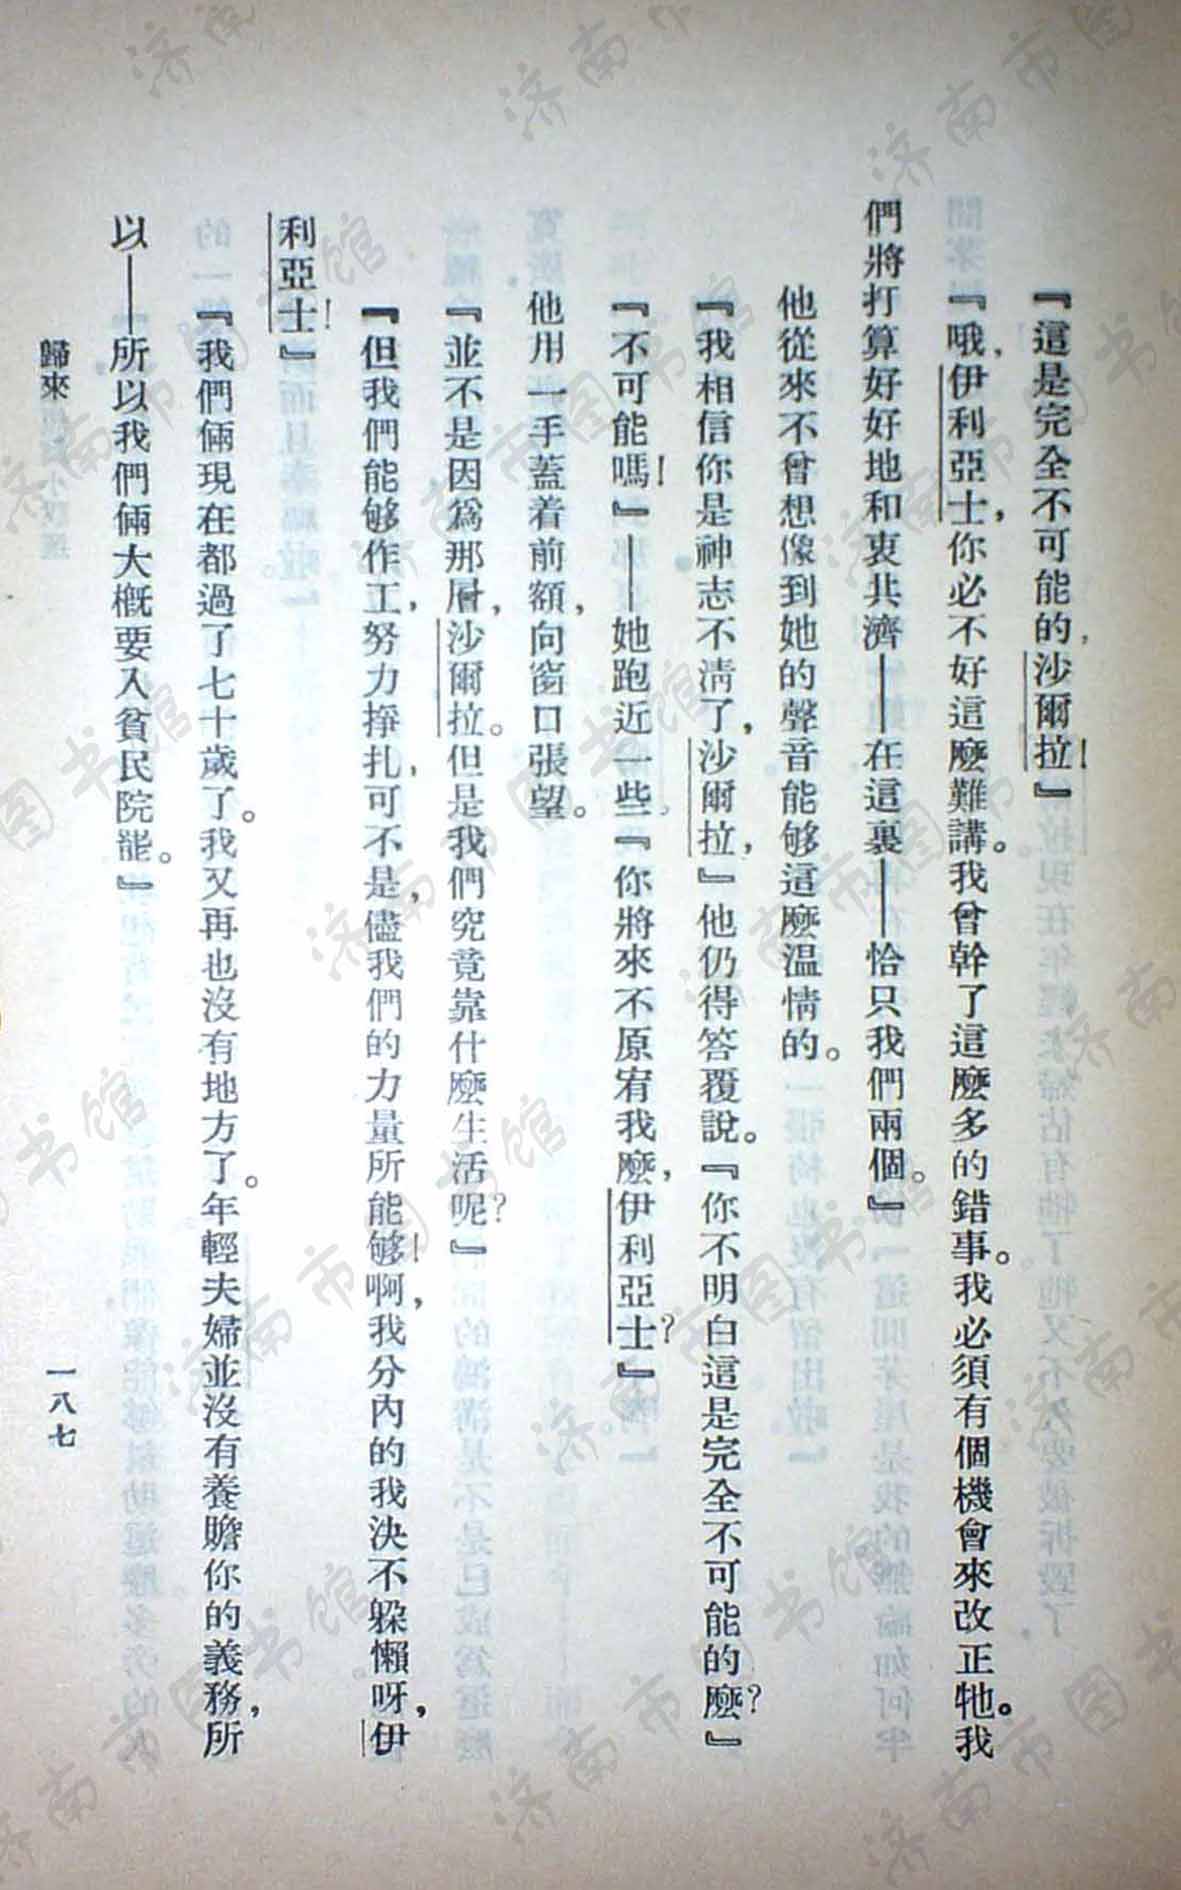 『這是完全不可能的，沙爾拉！』
『哦，伊利亞士，你必不好這麼難講。我曾幹了這麼多的錯事。我必須有個機會來改正牠。我
們將打算好好地和衷共濟——在這裏——恰只我們兩個。』
他從來不曾想像到她的聲音能够這麼温情的。
『我相信你是神志不淸了，沙爾拉，』他仍得答覆說。『你不明白這是完全不可能的麼？』
『不可能嗎！』——她跑近一些『你將來不原宥我麼，伊利亞士？』
他用一手蓋着前額，向窗口張望。
『並不是因爲那層，沙爾拉。但是我們究竟靠什麼生活呢？』
『但我們能够作工，努力掙扎，可不是，儘我們的力量所能够！啊，我分內的我決不躱懶呀，伊
利亞士！』
『我們倆現在都過了七十歲了。我又再也沒有地方了。年輕夫婦並沒有養贍你的義務，所
以——所以我們倆大槪要入貧民院能。』
歸來
一八七
济南市图书馆